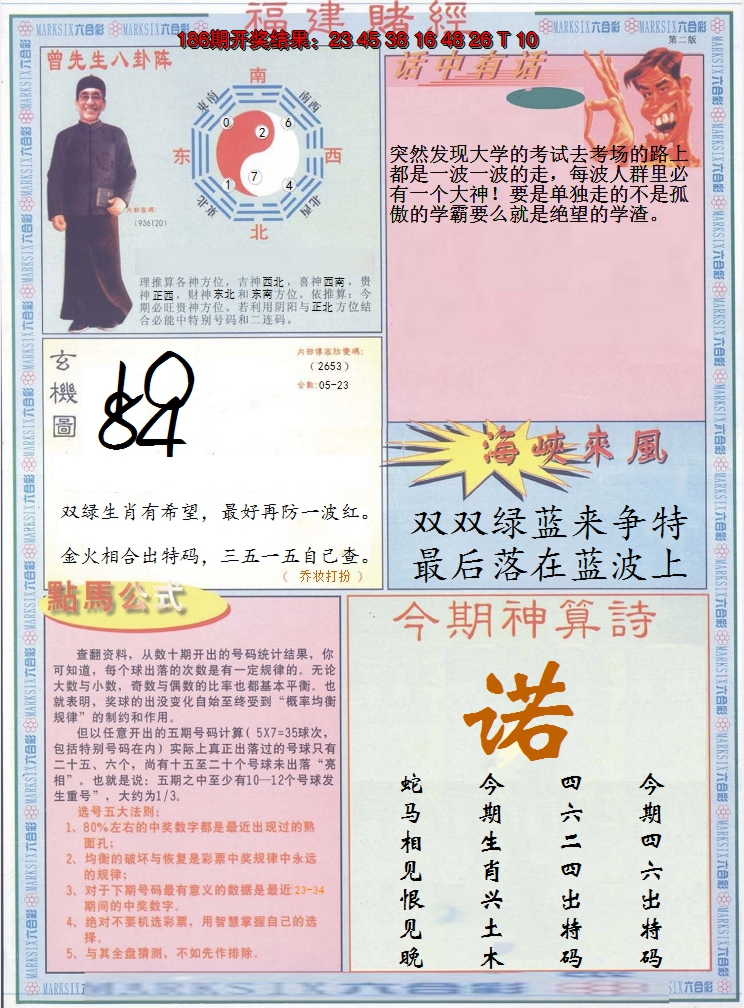 福建賭經
MARKSIX六合彩 MARKSIX六合彩 MARKSIX六合彩 MARKSIX六合彩
186期开奖结果：23 45 38 16 48 26 T 10
第二版
曾先生八卦阵
南
东南
南西
东
西
東北
北西
北
0 2 6
7
1 4
内部密碼:
(936120)
理推算各神方位，吉神西北，喜神西南，贵
神正西，财神东北和东南方位。依推算：今
期必旺贵神方位。若利用阴阳与正北方位结
合必能中特别号码和二连码。
话中有话
突然发现大学的考试去考场的路上
都是一波一波的走，每波人群里必
有一个大神！要是单独走的不是孤
傲的学霸要么就是绝望的学渣。
玄機圖
内部傳密防變碼:
(2653)
合数:05-23
双绿生肖有希望，最好再防一波红。
金火相合出特码，三五一五自己查。
（ 乔妆打扮 ）
海峽來風
双双绿蓝来争特
最后落在蓝波上
點馬公式
查翻资料，从数十期开出的号码统计结果，你
可知道，每个球出落的次数是有一定规律的。无论
大数与小数，奇数与偶数的比率也都基本平衡。也
就表明，奖球的出没变化自始至终受到“概率均衡
规律”的制约和作用。
但以任意开出的五期号码计算( 5X7=35球次，
包括特别号码在内）实际上真正出落过的号球只有
二十五、六个，尚有十五至二十个号球未出落“亮
相”。也就是说：五期之中至少有10—12个号球发
生重号”，大约为1/3。
选号五大法则:
1、80%左右的中奖数字都是最近出现过的熟
面孔;
2、均衡的破坏与恢复是彩票中奖规律中永远
的规律;
3、对于下期号码最有意义的数据是最近23-34
期间的中奖数字。
4、绝对不要机选彩票，用智慧掌握自己的选
择。
5、与其全盘猜测，不如先作排除。
今期神算詩
诺
今期四六出特码
四六二四出特码
今期生肖兴土木
蛇马相见恨见晚